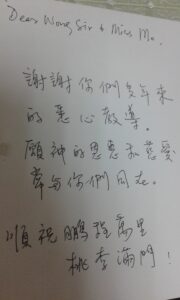 Dear Wong Sir & Miss Mo,
謝謝你們多年來
的悉心教導。
願神的恩惠和慈愛
常与你們同在。
順祝鵬程萬里
桃李滿門！